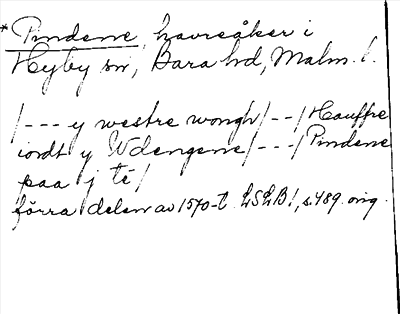 *Pindene, havreåker i
Hyby sn, Bara hd, Malm. l.
/--- y westre wongh/--/Hauffre
iordt y Wdengene/---/Pindene
paa j te/
förra delen av 1570-t. LSLB1, s.489. orig.